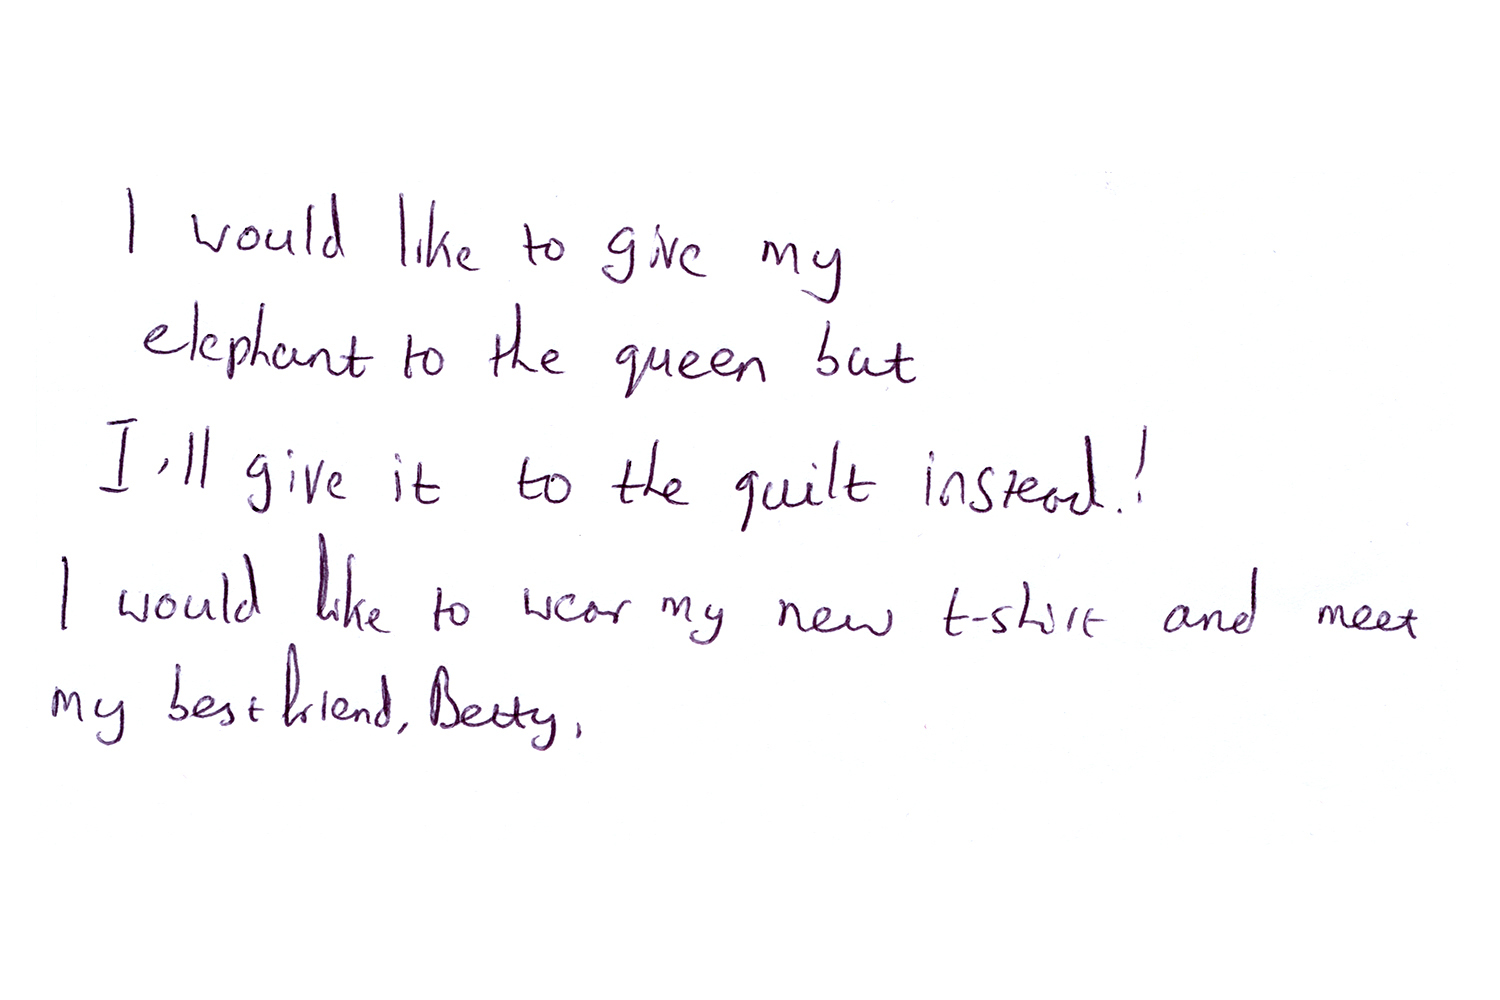 I would like to give my
elephant to the queen but
I'll give it to the quilt instead.!
I would like to wear my new t-shirt and meet
my best friend, Betty,